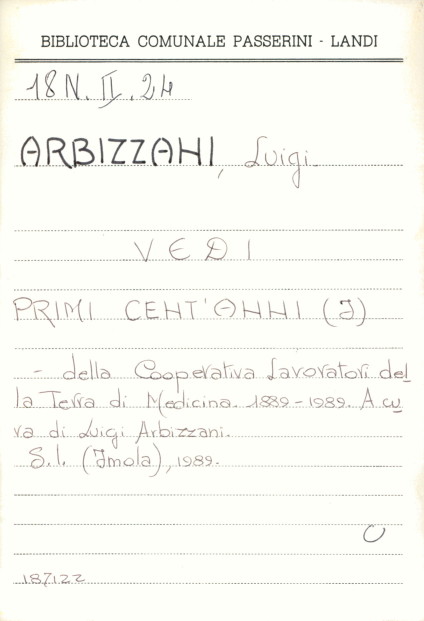 BIBLIOTECA COMUNALE PASSERINI - LANDI
18 N. II. 24
ARBIZZANI, Luigi
VEDI
PRIMI CENT'ANNI (I)
- della Cooperativa Lavoratori del
la Terra di Medicina. 1889-1989. A cu
ra di Luigi Arbizzani.
S.l. (Imola), 1989.
C
187122